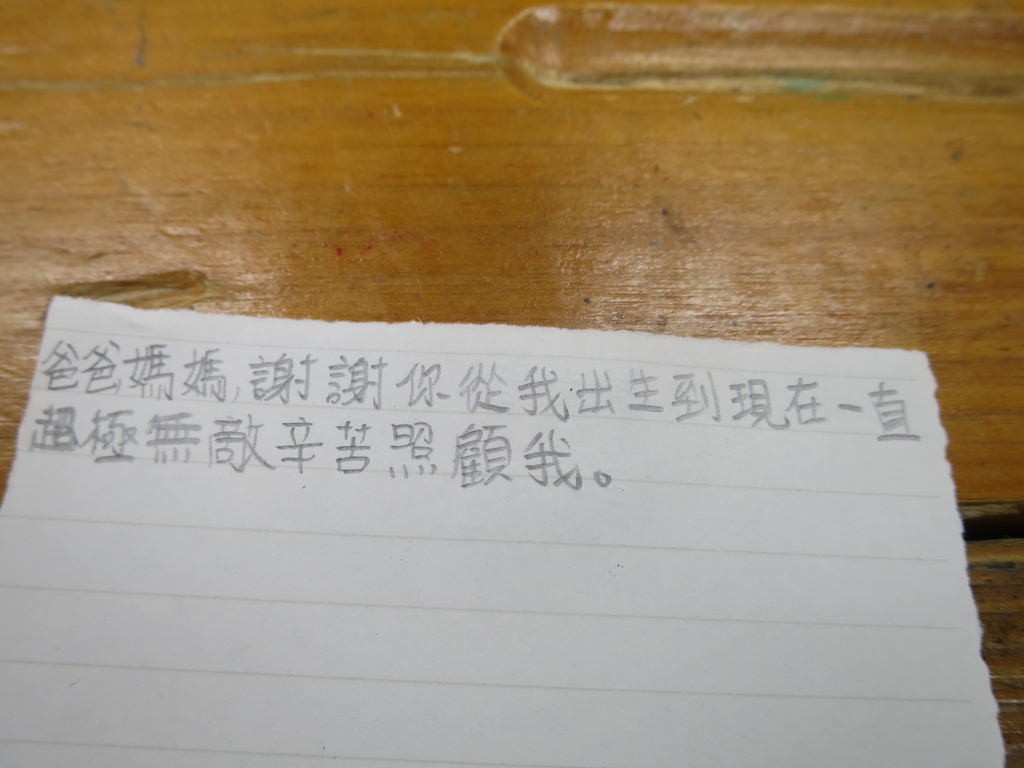 爸爸媽媽,謝謝你從我出生到現在一直
超極無敵辛苦照顧我。